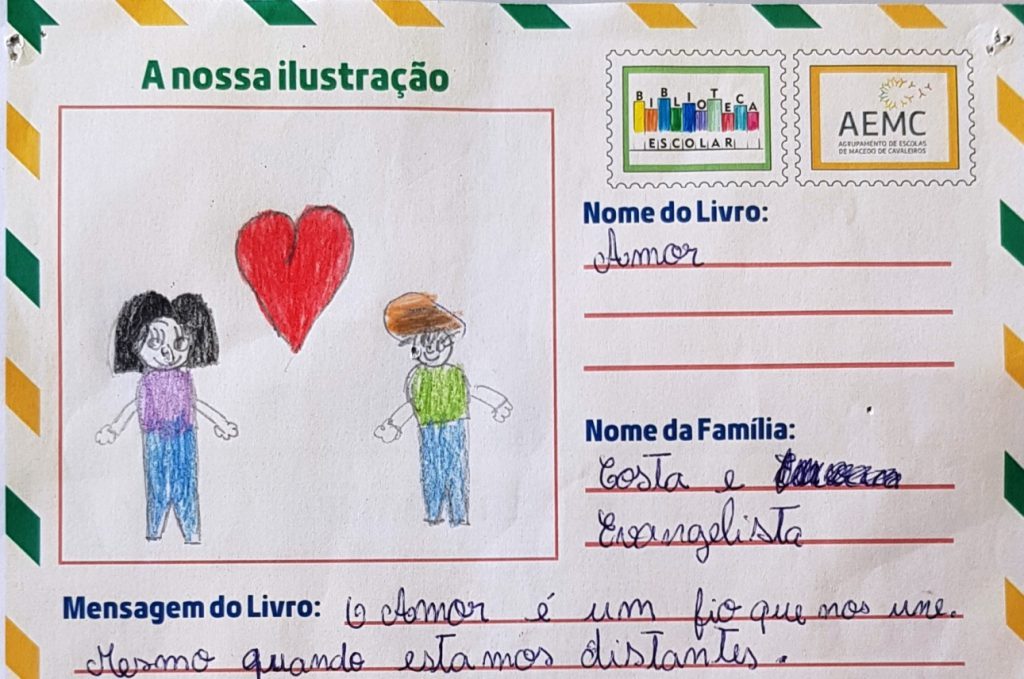 A nossa ilustração
BIBLIOTECA
ESCOLAR
AEMC
AGRUPAMENTO DE ESCOLAS
DE MACEDO DE CAVALEIROS
Nome do Livro:
Amor
Nome da Família:
Costa e
Evangelista
Mensagem do Livro: O Amor é um fio que nos une.
Mesmo quando estamos distantes.